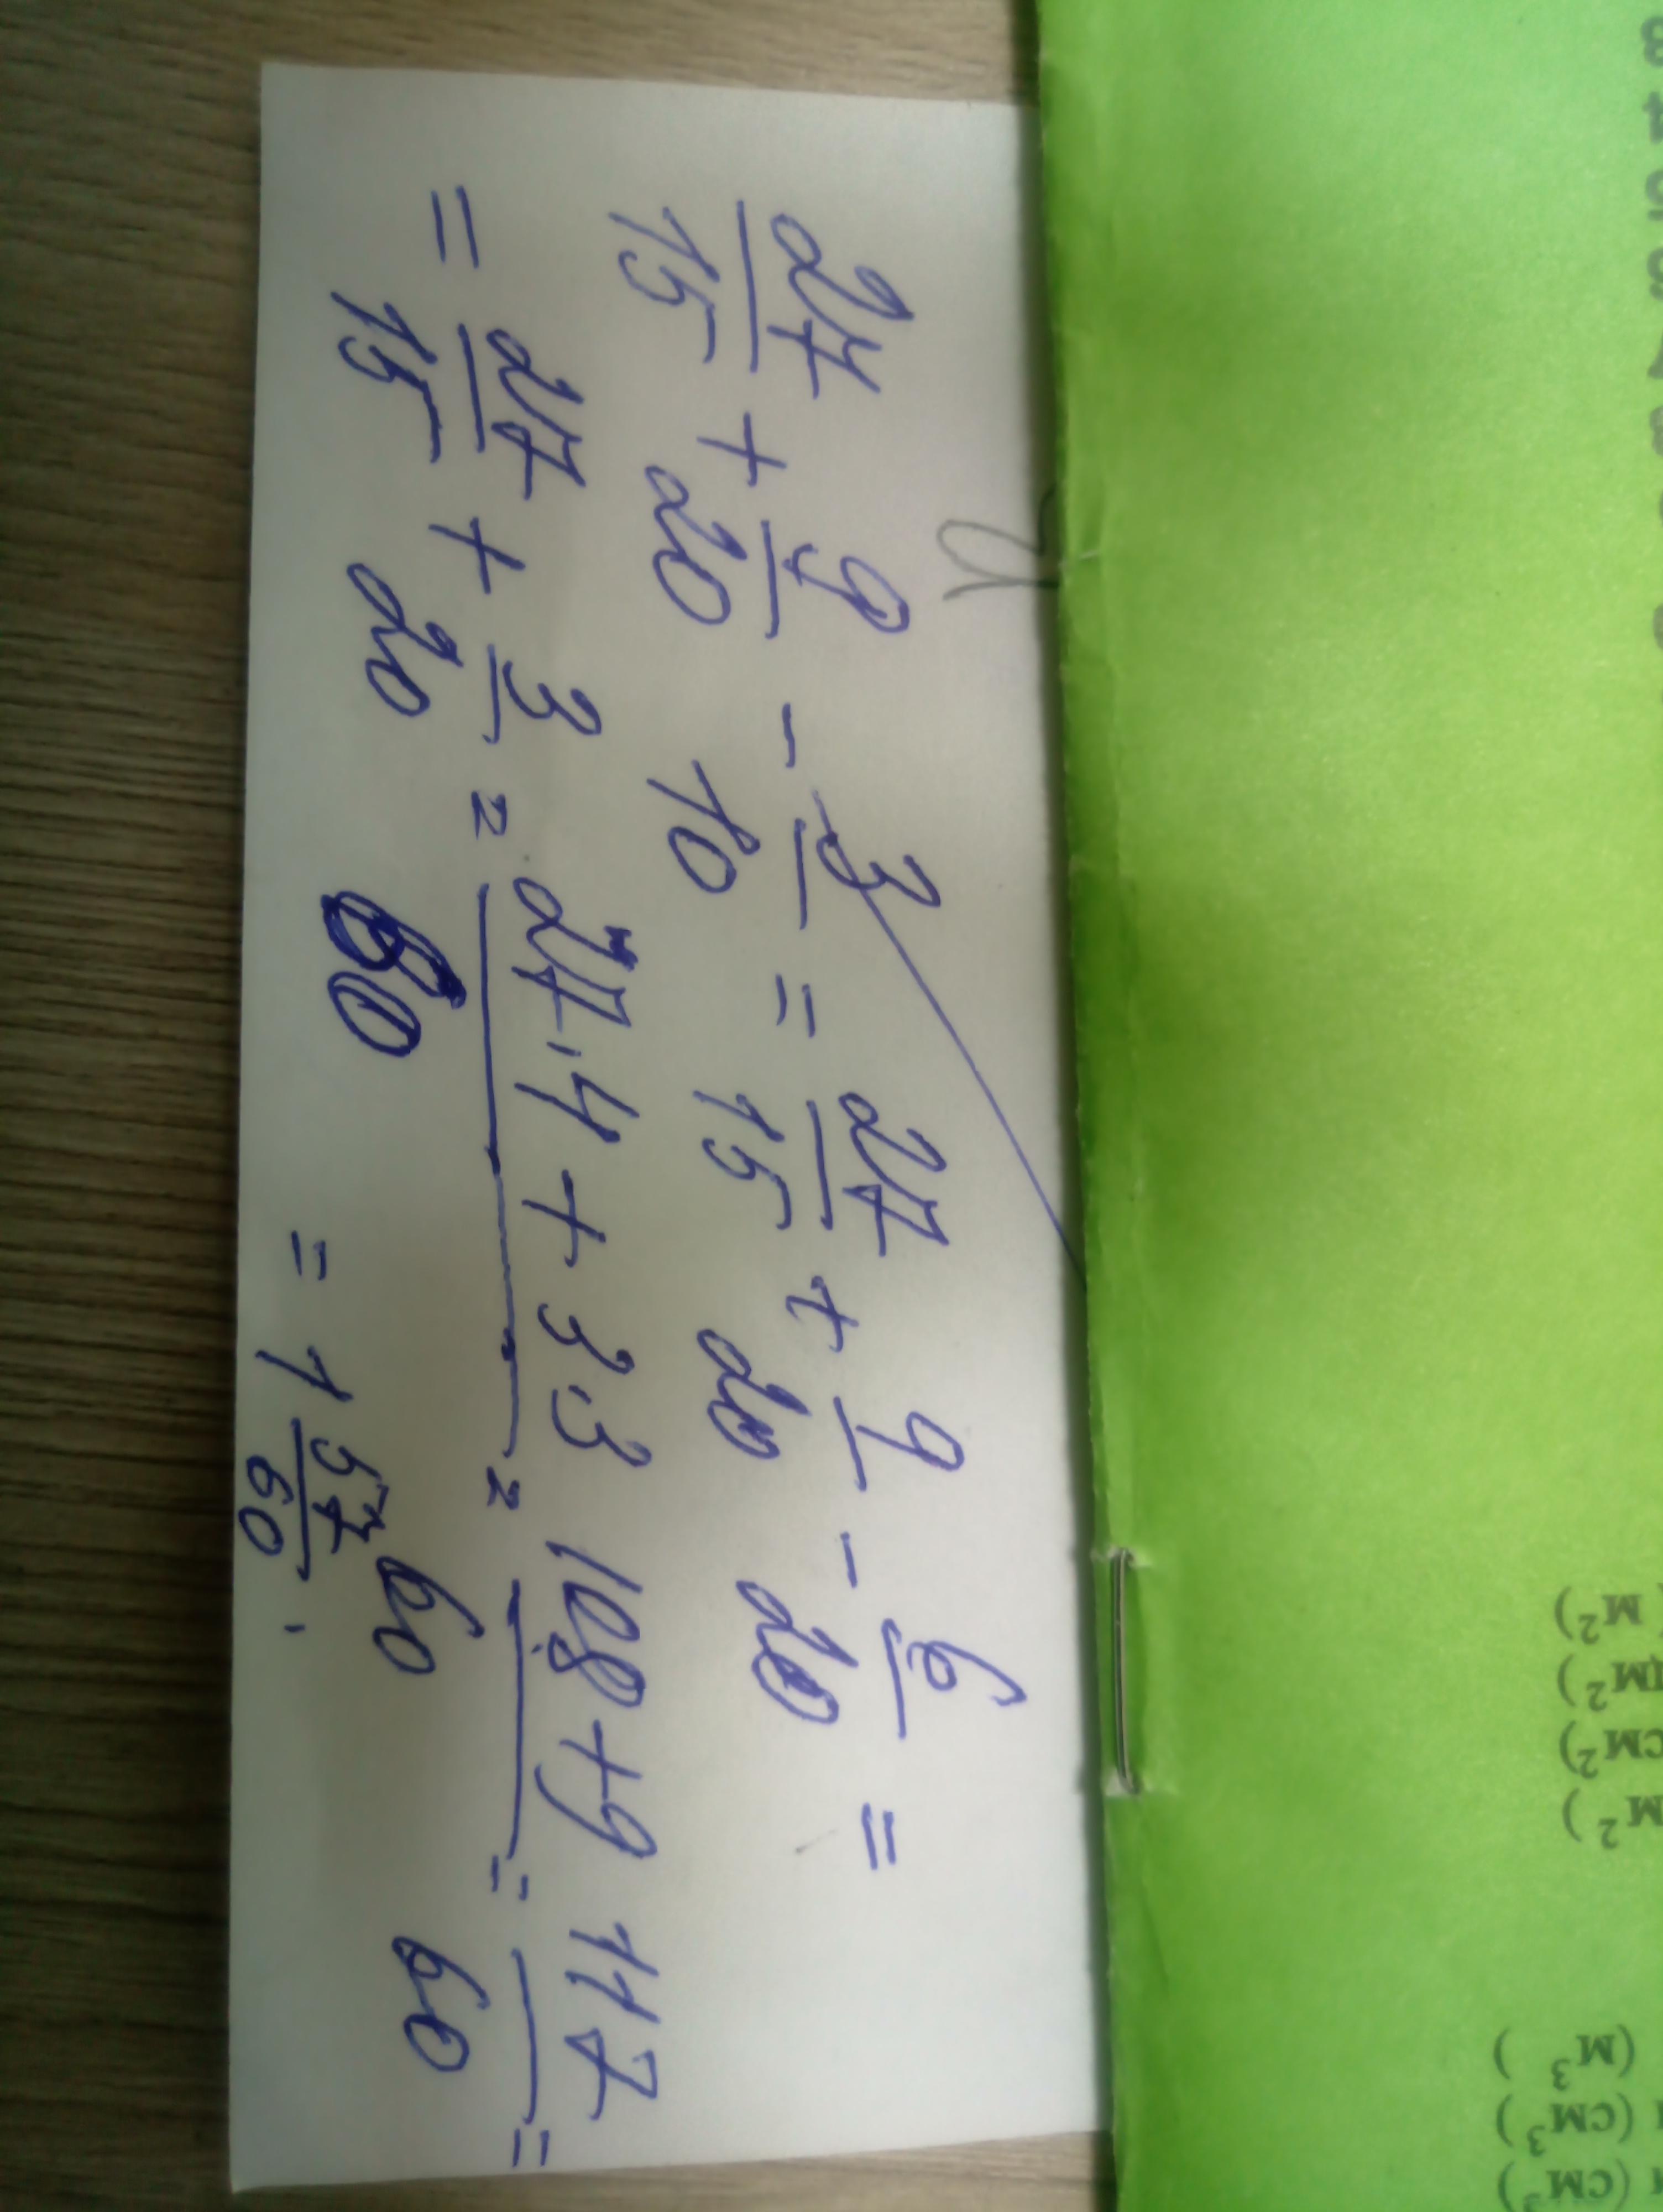 27/15 + 9/20 - 3/10 = 27/15 + 9/20 - 6/20 =
= 27/15 + 3/20 = (27·4 + 3·3)/60 = (108+9)/60 = 117/60 =
= 1 57/60.
м²)
дм²)
см²)
м²)
(м³)
(см³)
(см³)